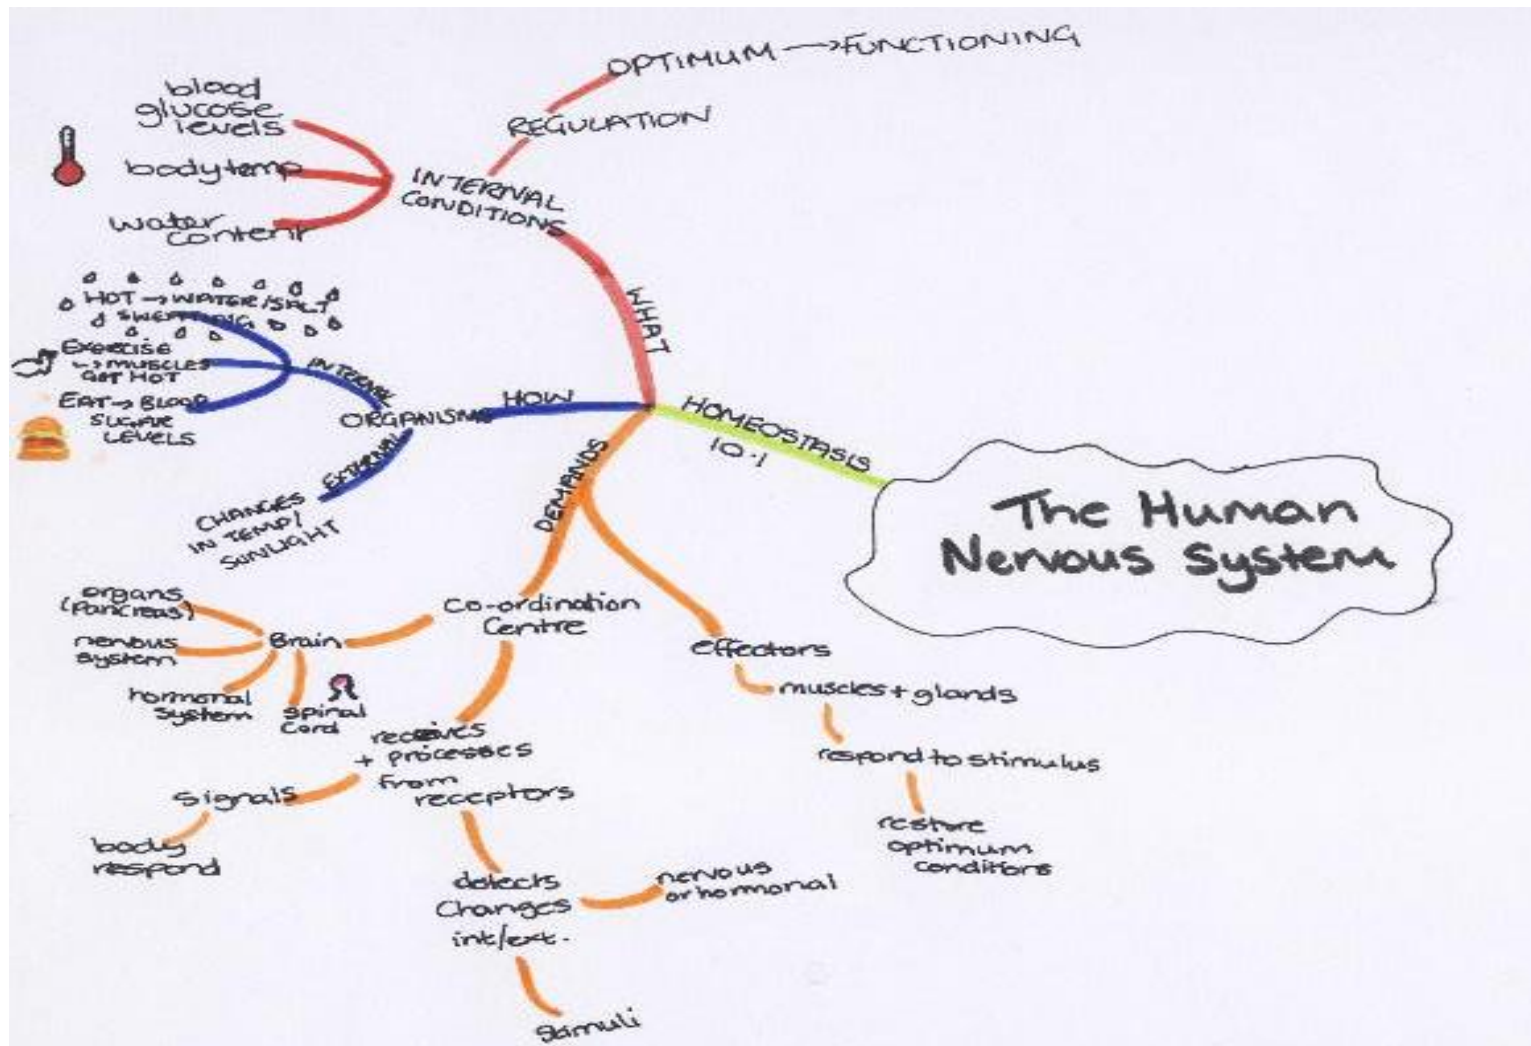 The Human
Nervous System
HOMEOSTASIS
10.1
WHAT
INTERNAL
CONDITIONS
REGULATION
OPTIMUM → FUNCTIONING
blood
glucose
levels
body temp
water
content
HOW
ORGANISMS
INTERNAL
HOT → WATER/SALT
SWEATING
Exercise
↳ MUSCLES
GET HOT
EAT → BLOOD
SUGAR
LEVELS
EXTERNAL
CHANGES
IN TEMP/
SUNLIGHT
DEMANDS
co-ordination
Centre
Brain
organs
(pancreas)
nervous
system
hormonal
system
spinal
Cord
receives
+ processes
from
receptors
Signals
body
respond
detects
Changes
int/ext.
nervous
or hormonal
stimuli
effectors
muscles + glands
respond to stimulus
restore
optimum
conditions